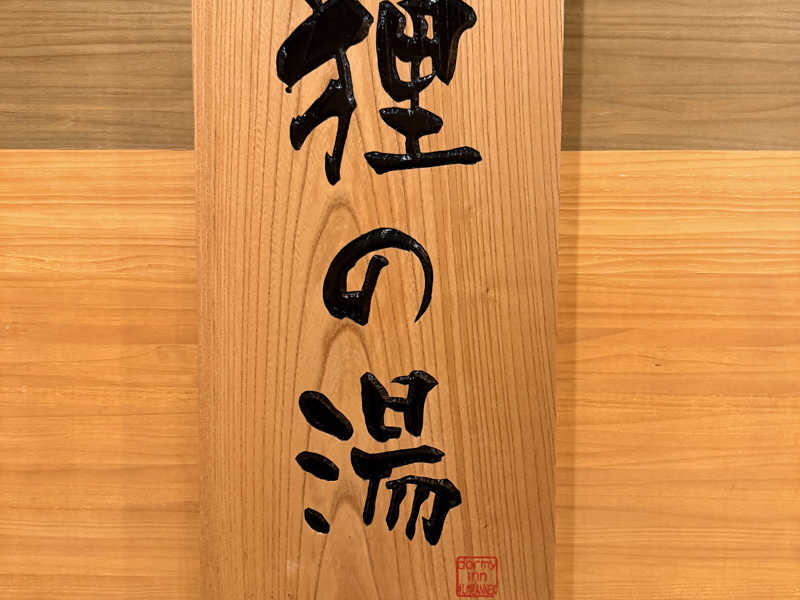 狸の湯
dormy
inn